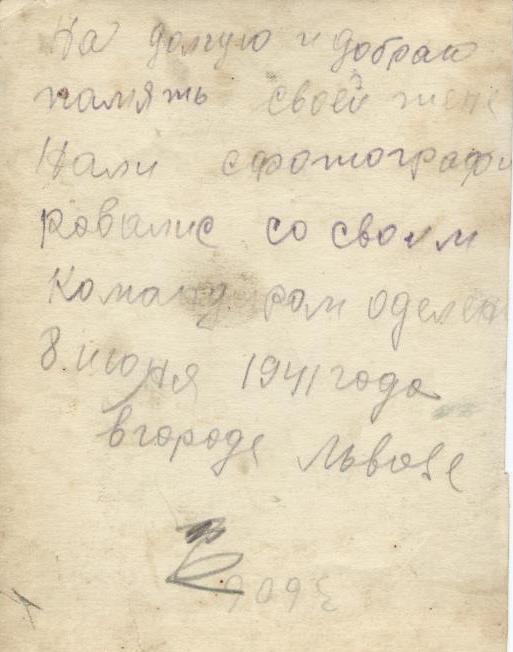 На долгую и добраю
память своей жене
Нали сфотографи
ровалис со своим
командиром оделен
8 июня 1941 года
вгороде Львове
3606